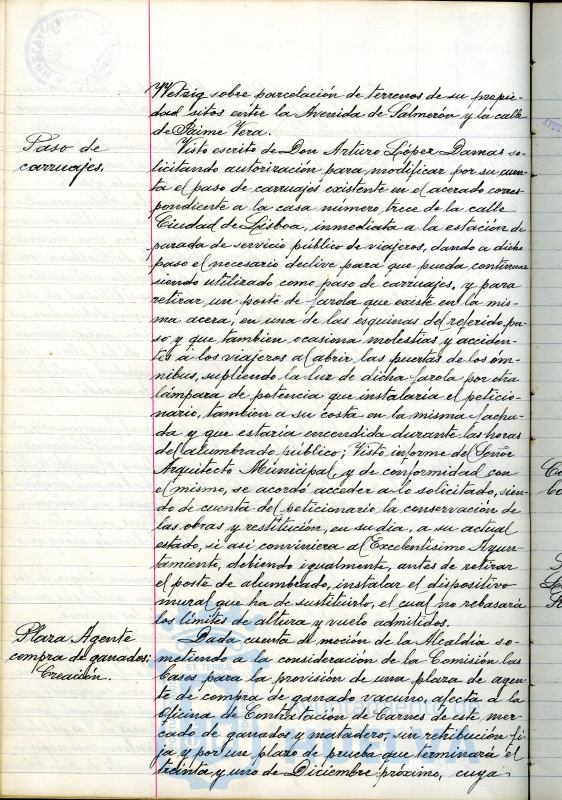 Wetzig sobre parcelación de terrenos de su propie-
dad sitos entre la Avenida de Salmerón y la calle
de Jaime Vera.
Paso de
carruajes.
Visto escrito de Don Arturo López Damas so-
licitando autorización para modificar por su cuen-
ta el paso de carruajes existente en el acerado corres-
pondiente a la casa número trece de la calle
Ciudad de Lisboa, inmediata a la estación de
parada de servicio público de viajeros, dando a dicho
paso el necesario declive para que pueda continuar
siendo utilizado como paso de carruajes, y para
retirar un poste de farola que existe en la mis-
ma acera, en una de las esquinas del referido pa-
so y que tambien ocasiona molestias y acciden-
tes a los viajeros al abrir las puertas de los óm-
nibus, supliendo la luz de dicha farola por otra
lámpara de potencia que instalaría el peticio-
nario, tambien a su costa en la misma facha-
da y que estaría encendida durante las horas
del alumbrado público; Visto informe del Señor
Arquitecto Municipal, y de conformidad con
el mismo, se acordó acceder a lo solicitado, sien-
do de cuenta del peticionario la conservación de
las obras y restitución, en su dia, a su actual
estado, si asi conviniera al Excelentísimo Ayun-
tamiento, debiendo igualmente, antes de retirar
el poste de alumbrado, instalar el dispositivo
mural que ha de sustituirlo, el cual no rebasará
los límites de altura y vuelo admitidos.
Plaza Agente
compra de ganados:
Creación.
Dada cuenta de moción de la Alcaldía so-
metiendo a la consideración de la Comisión las
bases para la provisión de una plaza de agen-
te de compra de ganado vacuno, afecta a la
Oficina de Contratación de Carnes de este mer-
cado de ganados y matadero, sin retribución fi-
ja y por un plazo de prueba que terminará el
treinta y uno de Diciembre próximo, cuya